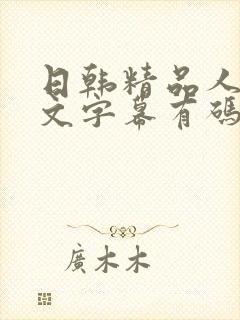 日韩精品人
文字幕有码
廣木木